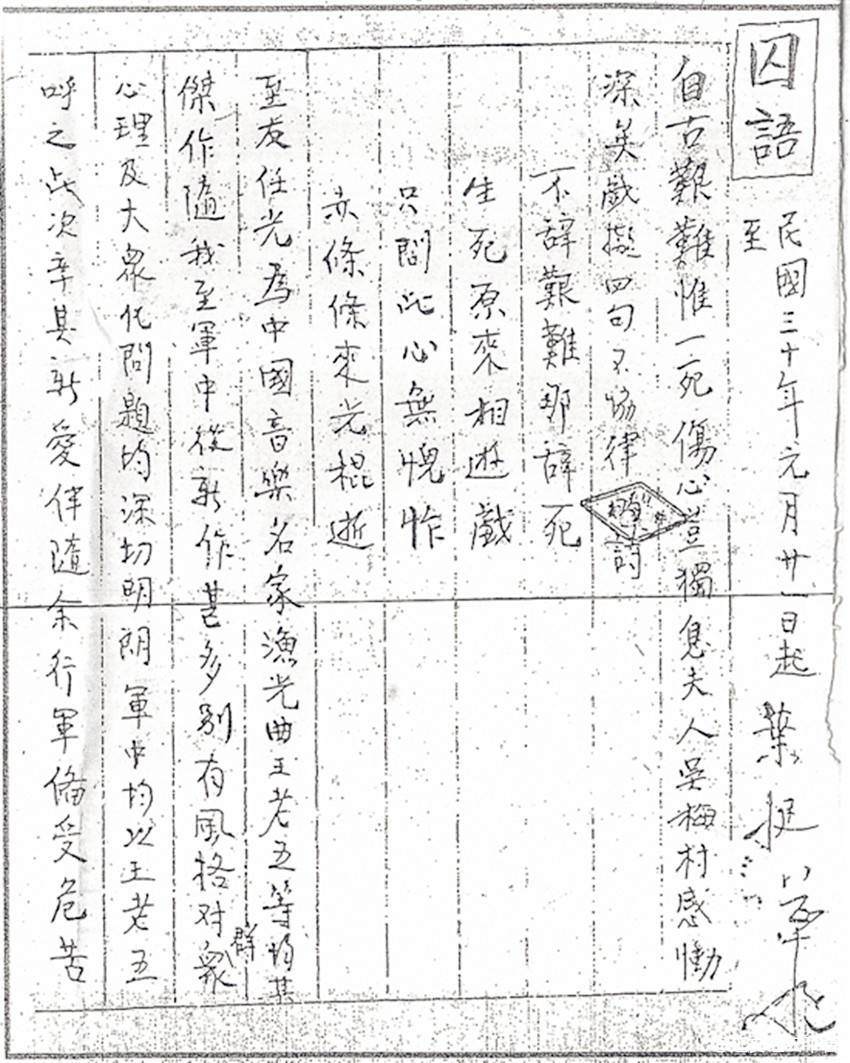 囚語
民國三十年元月廿一日起 葉挺
至
自古艱難惟一死傷心豈獨息夫人吳梅村感慟
深矣戲擬四句不協律詩
不辞艱難那辞死
生死原來相遊戲
只問此心無愧怍
赤條條來光棍逝
至友任光為中國音樂名家漁光曲王老五等均其
傑作隨我至軍中後新作甚多別有風格对群衆
心理及大衆化問題均深切明朗軍中均以王老五
呼之此次率其新愛伴隨余行軍備受危苦